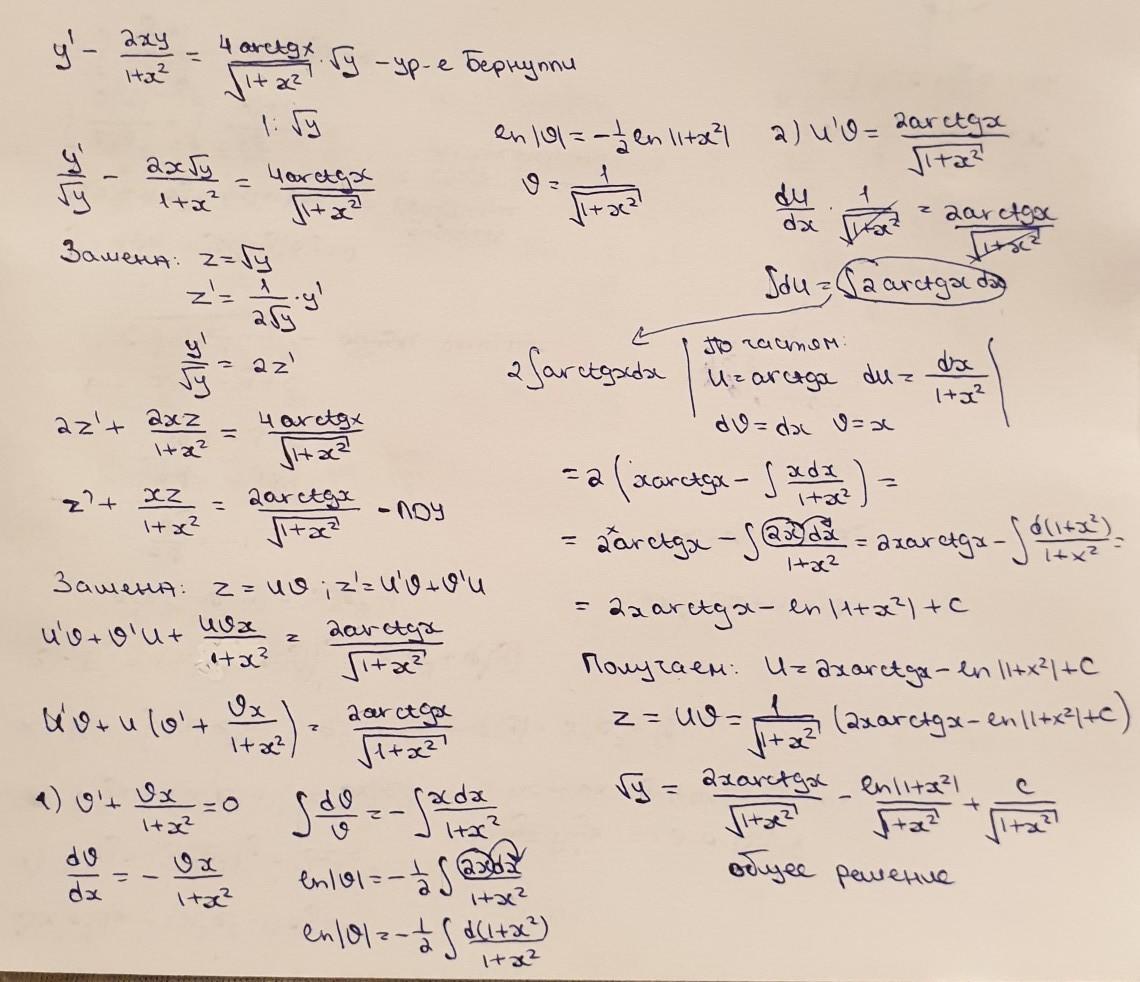 y' - 2xy/(1+x²) = 4arctgx/√(1+x²) · √y - ур-е Бернулли
|: √y
y'/√y - 2x√y/(1+x²) = 4arctgx/√(1+x²)
Замена: z = √y
z' = 1/(2√y) · y'
y'/√y = 2z'
2z' + 2xz/(1+x²) = 4arctgx/√(1+x²)
z' + xz/(1+x²) = 2arctgx/√(1+x²) - ЛОУ
Замена: z = uϑ ; z' = u'ϑ + ϑ'u
u'ϑ + ϑ'u + uϑx/(1+x²) = 2arctgx/√(1+x²)
u'ϑ + u(ϑ' + ϑx/(1+x²)) = 2arctgx/√(1+x²)
1) ϑ' + ϑx/(1+x²) = 0
dϑ/dx = - ϑx/(1+x²)
∫ dϑ/ϑ = - ∫ xdx/(1+x²)
ln|ϑ| = - 1/2 ∫ 2xdx/(1+x²)
ln|ϑ| = - 1/2 ∫ d(1+x²)/(1+x²)
ln|ϑ| = - 1/2 ln|1+x²|
ϑ = 1/√(1+x²)
2) u'ϑ = 2arctgx/√(1+x²)
du/dx · 1/√(1+x²) = 2arctgx/√(1+x²)
∫du = ∫2arctgxdx
2∫arctgxdx | по частям:
u = arctgx du = dx/(1+x²) |
dϑ = dx ϑ = x
= 2(xarctgx - ∫ xdx/(1+x²)) =
= 2xarctgx - ∫ 2xdx/(1+x²) = 2xarctgx - ∫ d(1+x²)/(1+x²) =
= 2xarctgx - ln|1+x²| + C
Получаем: u = 2xarctgx - ln|1+x²| + C
z = uϑ = 1/√(1+x²) (2xarctgx - ln|1+x²| + C)
√y = 2xarctgx/√(1+x²) - ln|1+x²|/√(1+x²) + C/√(1+x²)
общее решение